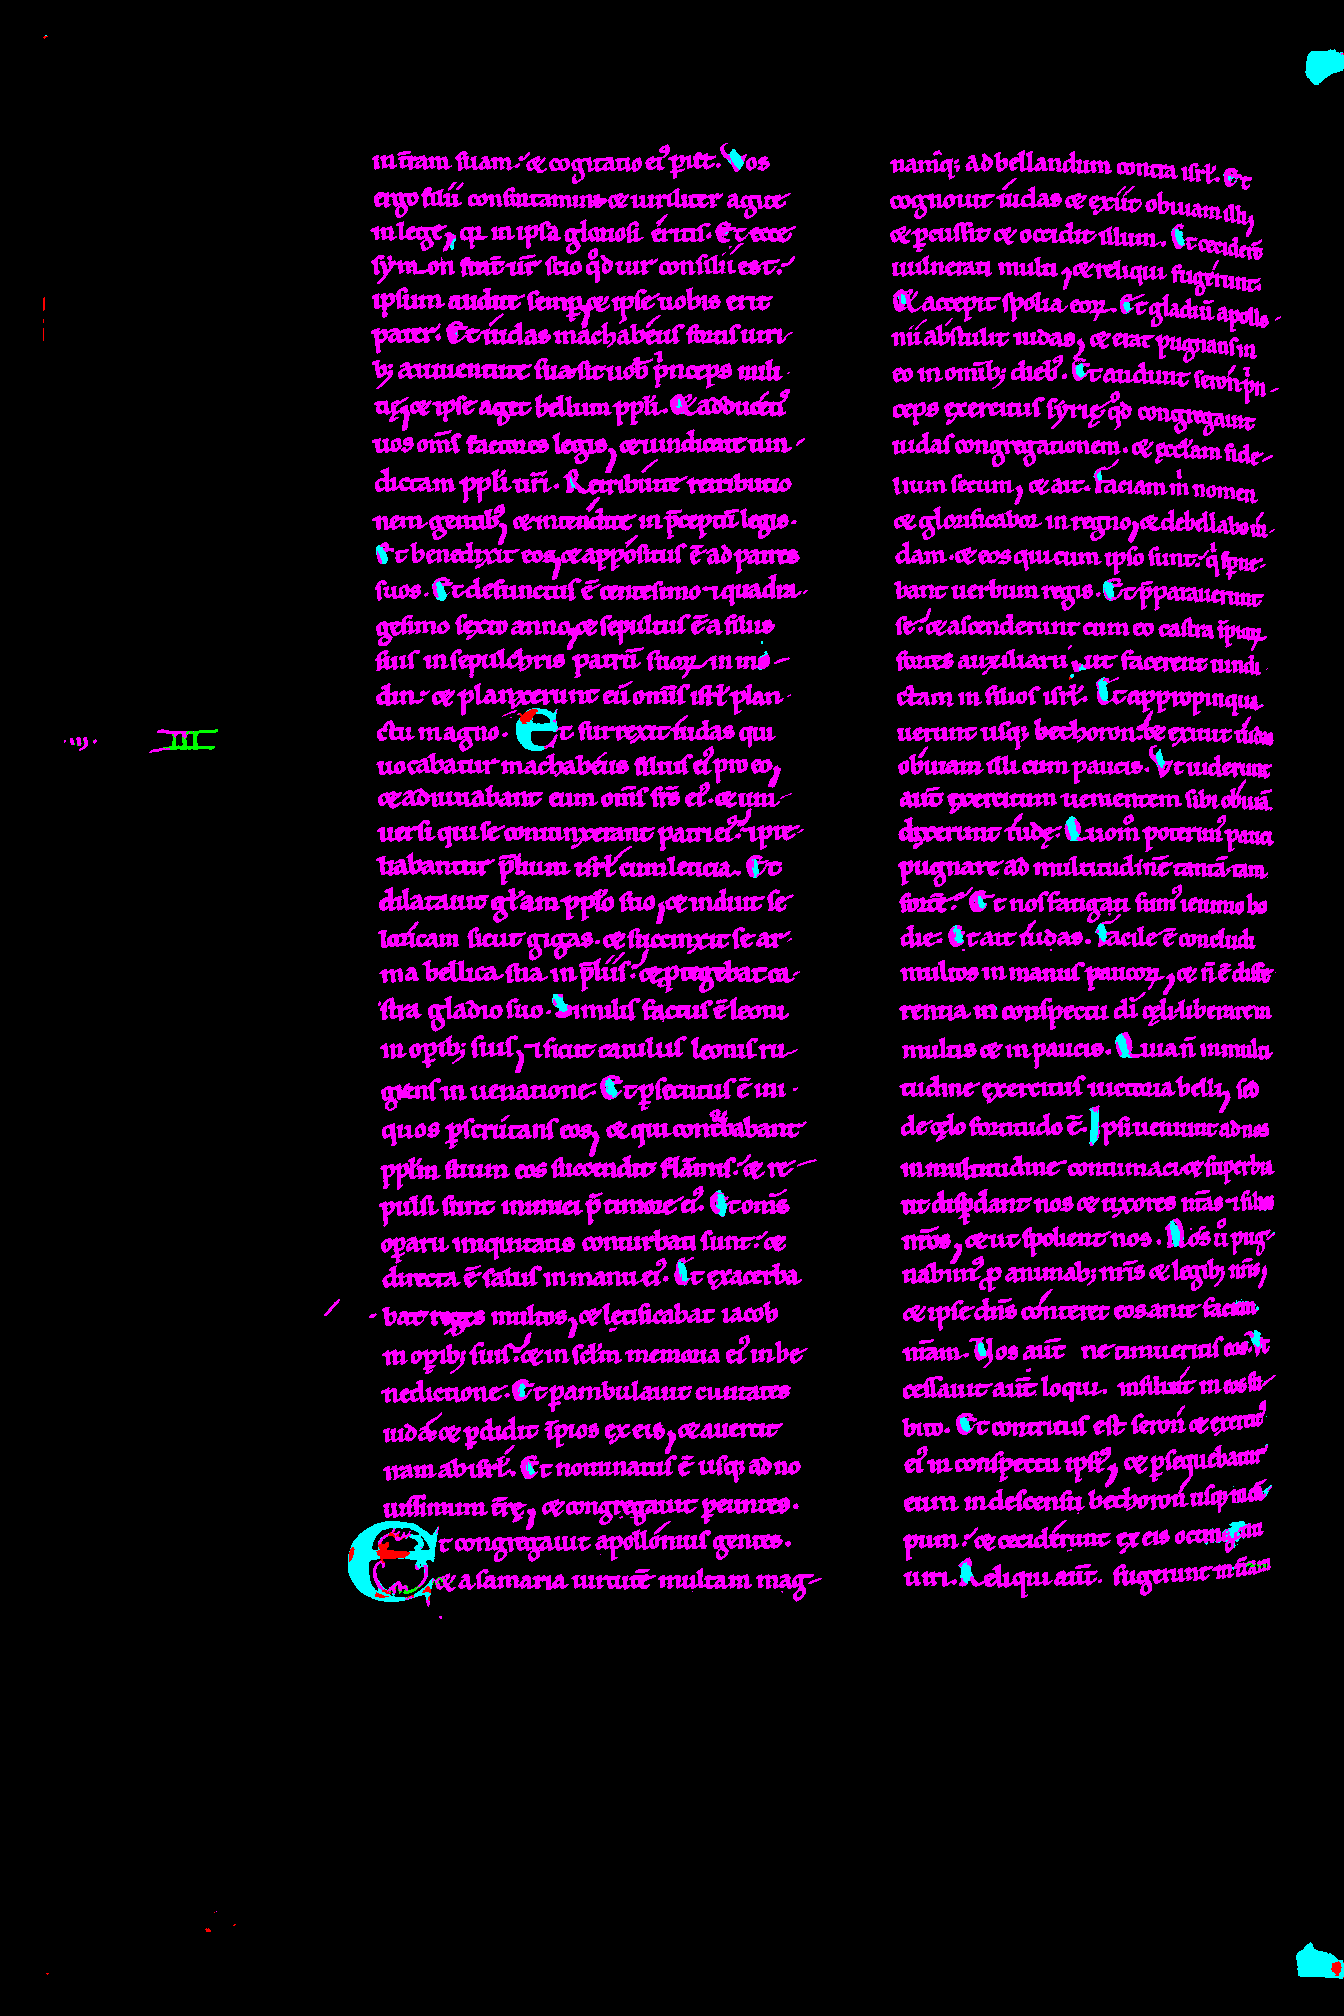 in t̄ram suam. et cogitatio eiꝰ periet. Vos
ergo filii confortamini et uiriliter agite
in lege, quia in ipsa gloriosi eritis. Et ecce
symon frater ur̄ scio qd̄ uir consilii est.
ipsum audite semper, et ipse uobis erit
pater. Et iudas machabeus fortis uiri
b; a iuuentute sua sit uob̄ princeps mili
tię, et ipse aget bellum ppl̄i. Et adducetis
uos om̄s factores legis, et uindicate uin
dictam ppl̄i ur̄i. Retribuite retributio
nem gentib;, et intendite in p̄ceptū legis.
Et benedixit eos, et appositus ē ad patres
suos. Et defunctus ē centesimo ⁊ quadra
gesimo sexto anno, et sepultus ē a filiis
suis in sepulchris patrū suoꝝ in mo
din. et planxerunt eū om̄is isrl̄ plan
ctu magno. Et surrexit iudas qui
uocabatur machabeus filius eiꝰ pro eo,
et adiuuabant eum om̄s fr̄s eiꝰ. et uni
uersi qui se coniunxerant patri eiꝰ. ⁊ prie
liabantur p̄lium isrl̄ cum leticia. Et
dilatauit gl̄am ppl̄o suo, et induit se
loricam sicut gigas. et succinxit se ar
ma bellica sua in p̄liis. et protegebat ca
stra gladio suo. Similis factus ē leoni
in opib; suis, ⁊ sicut catulus leonis ru
giens in uenatione. Et psecutus ē ini
quos pscrutans eos, et qui conturbabant
ppl̄m suum eos succendit flāmis. et re
pulsi sunt inimici p̄ timore eiꝰ. Et om̄s
operarii iniquitatis conturbati sunt. et
directa ē salus in manu eiꝰ. Et exacerba
bat reges multos, et lętificabat iacob
in opib; suis. et in sc̄lm memoria eiꝰ in be
nedictione. Et pambulauit ciuitates
iuda. et pdidit īpios ex eis, et auertit
iram ab isrl̄. Et nominatus ē usq; ad no
uissimum t̄rę, et congregauit pereuntes.
Et congregauit apollonius gentes.
et a samaria uirtutē multam et mag
III
nāq; ad bellandum contra isrl̄. Et
cognouit iudas et exiit obuiam illi,
et pcussit et occidit illum. Et ceciderū
uulnerati multi, et reliqui fugerunt.
Et accepit spolia eoꝝ. Et gladiū apollo
nii abstulit iudas, et erat pugnans in
eo in omīb; diebꝰ. Et audiuit seron prin
ceps exercitus syrię qd̄ congregauit
iudas congregationem. et eccl̄am fide
lium secum, et ait. Faciam mi nomen
et glorificabor in regno, et debellabo iu
dam. et eos qui cum ipso sunt. qi sperne
bant uerbum regis. Et p̄parauerunt
se. et ascenderunt cum eo castra īpioꝝ
fortes auxiliarii, ut facerent uindi
ctam in filios isrl̄. Et appropinqua
uerunt usq; bethoron. et exiuit iudas
obuiam illi cum paucis. Vt uiderunt
aut̄ exercitum uenientem sibi obuiā
dixerunt iudę. Quom̄ poterimꝰ pauci
pugnare ad multitudinē tantā. tam
fortē. Et nos fatigati sumꝰ ieiunio ho
die. Et ait iudas. Facile ē concludi
multos in manus paucoꝝ, et n̄ ē diffe
rentia in conspectu dī cęli liberarem
multis et in paucis. Quia n̄ in multi
tudine exercitus uictoria belli, sed
de cęlo fortitudo ē. Ipsi ueniunt ad nos
in multitudine contumaci et superbia
ut disperdant nos et uxores nr̄as ⁊ filios
nr̄os, et ut spolient nos. Nos ū pug
nabimꝰ p animab; nr̄is et legib; nr̄is,
et ipse dn̄s conteret eos ante faciem
nr̄am. Vos aut̄ ne timueritis eos. Vt
cessauit aut̄ loqui. insiluit in eos su
bito. Et contritus est seron et exercitꝰ
eiꝰ in conspectu ipsiꝰ, et psequebatur
eum in descensu bethoron usq; in cam
pum. et ceciderunt ex eis octingenti
uiri. Reliqui aut̄. fugerunt in t̄ram